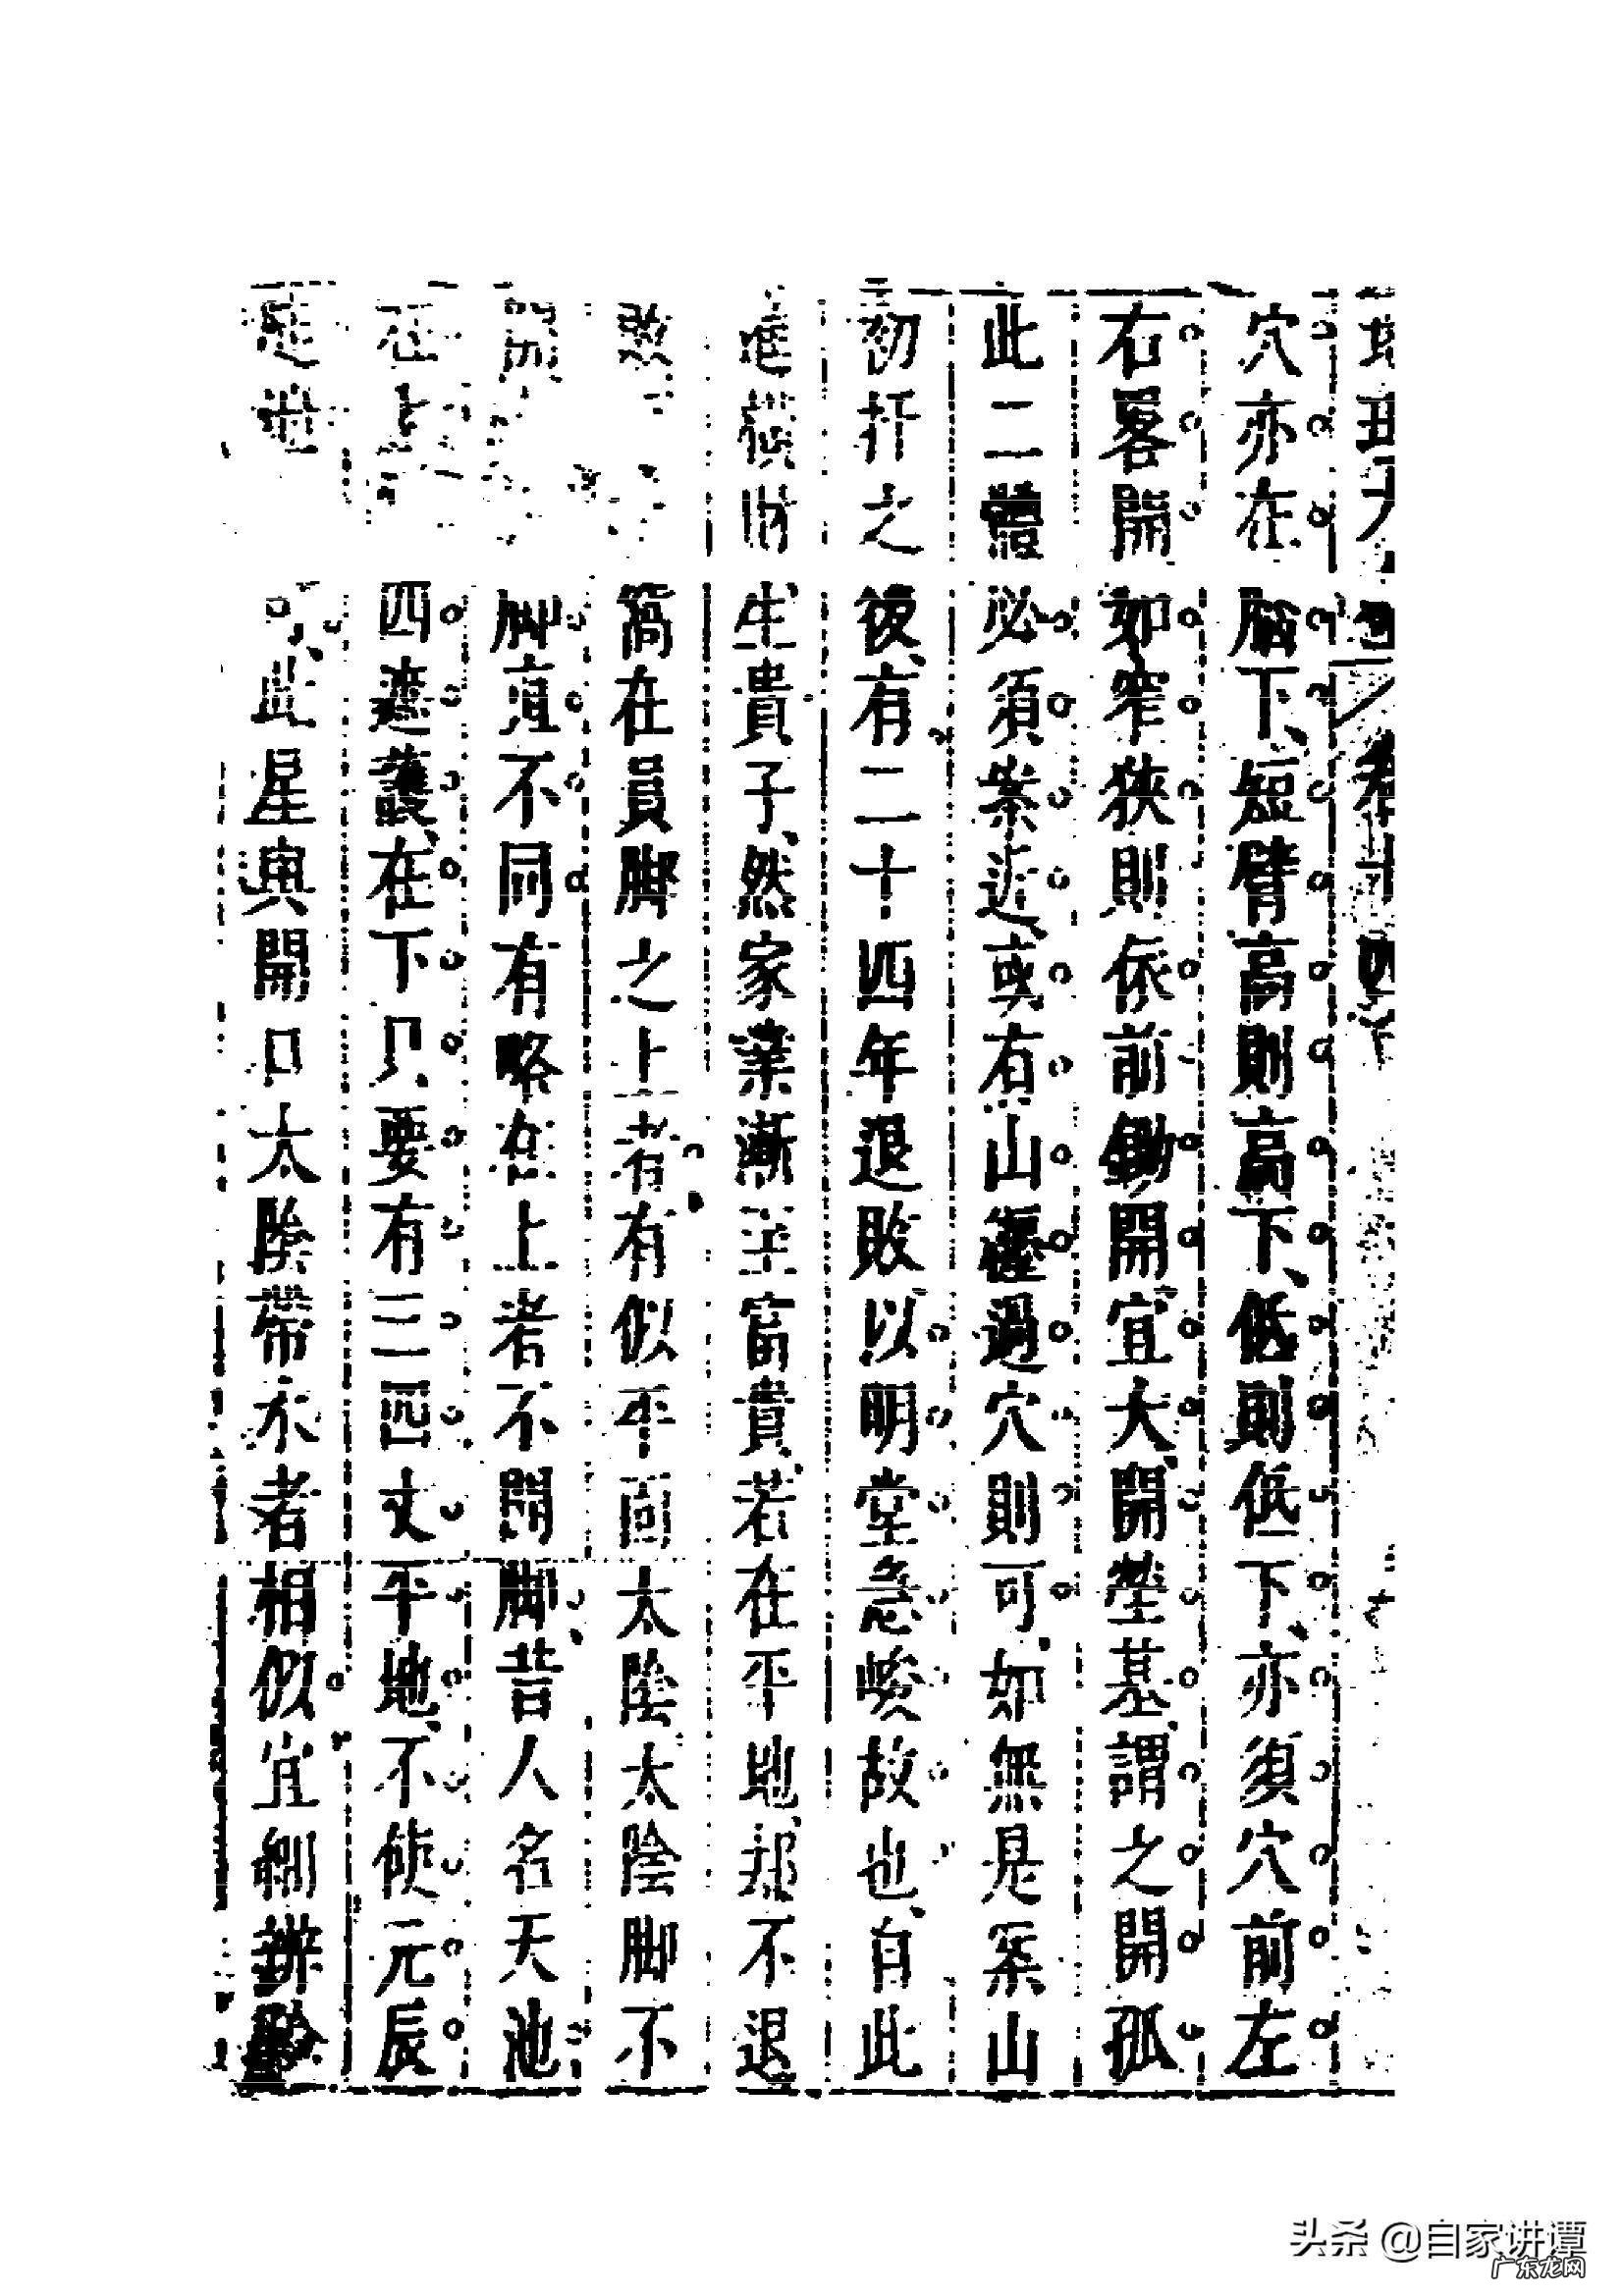 穴亦在腦下、短臂高則高下、低則低下、亦須穴前左
右畧開如窄狹則依前鋤開宜大開塋基謂之開孤
此二體必須案近或有山邊過穴則可如無是案山
初扦之後有二十四年退敗以明堂急峻故也自此
進橫財生貴子、然家業漸至富貴若在平地却不退
敗 窩在員脚之上者有似平面太陰太陰脚不
脚直不同有略在上者不開脚昔人名天池
在上 四遮護、在下只要有三四丈平地不使元辰
可、此星與開口太陰帶水者相似宜細辨
头条 @自家讲谭
广东龙网